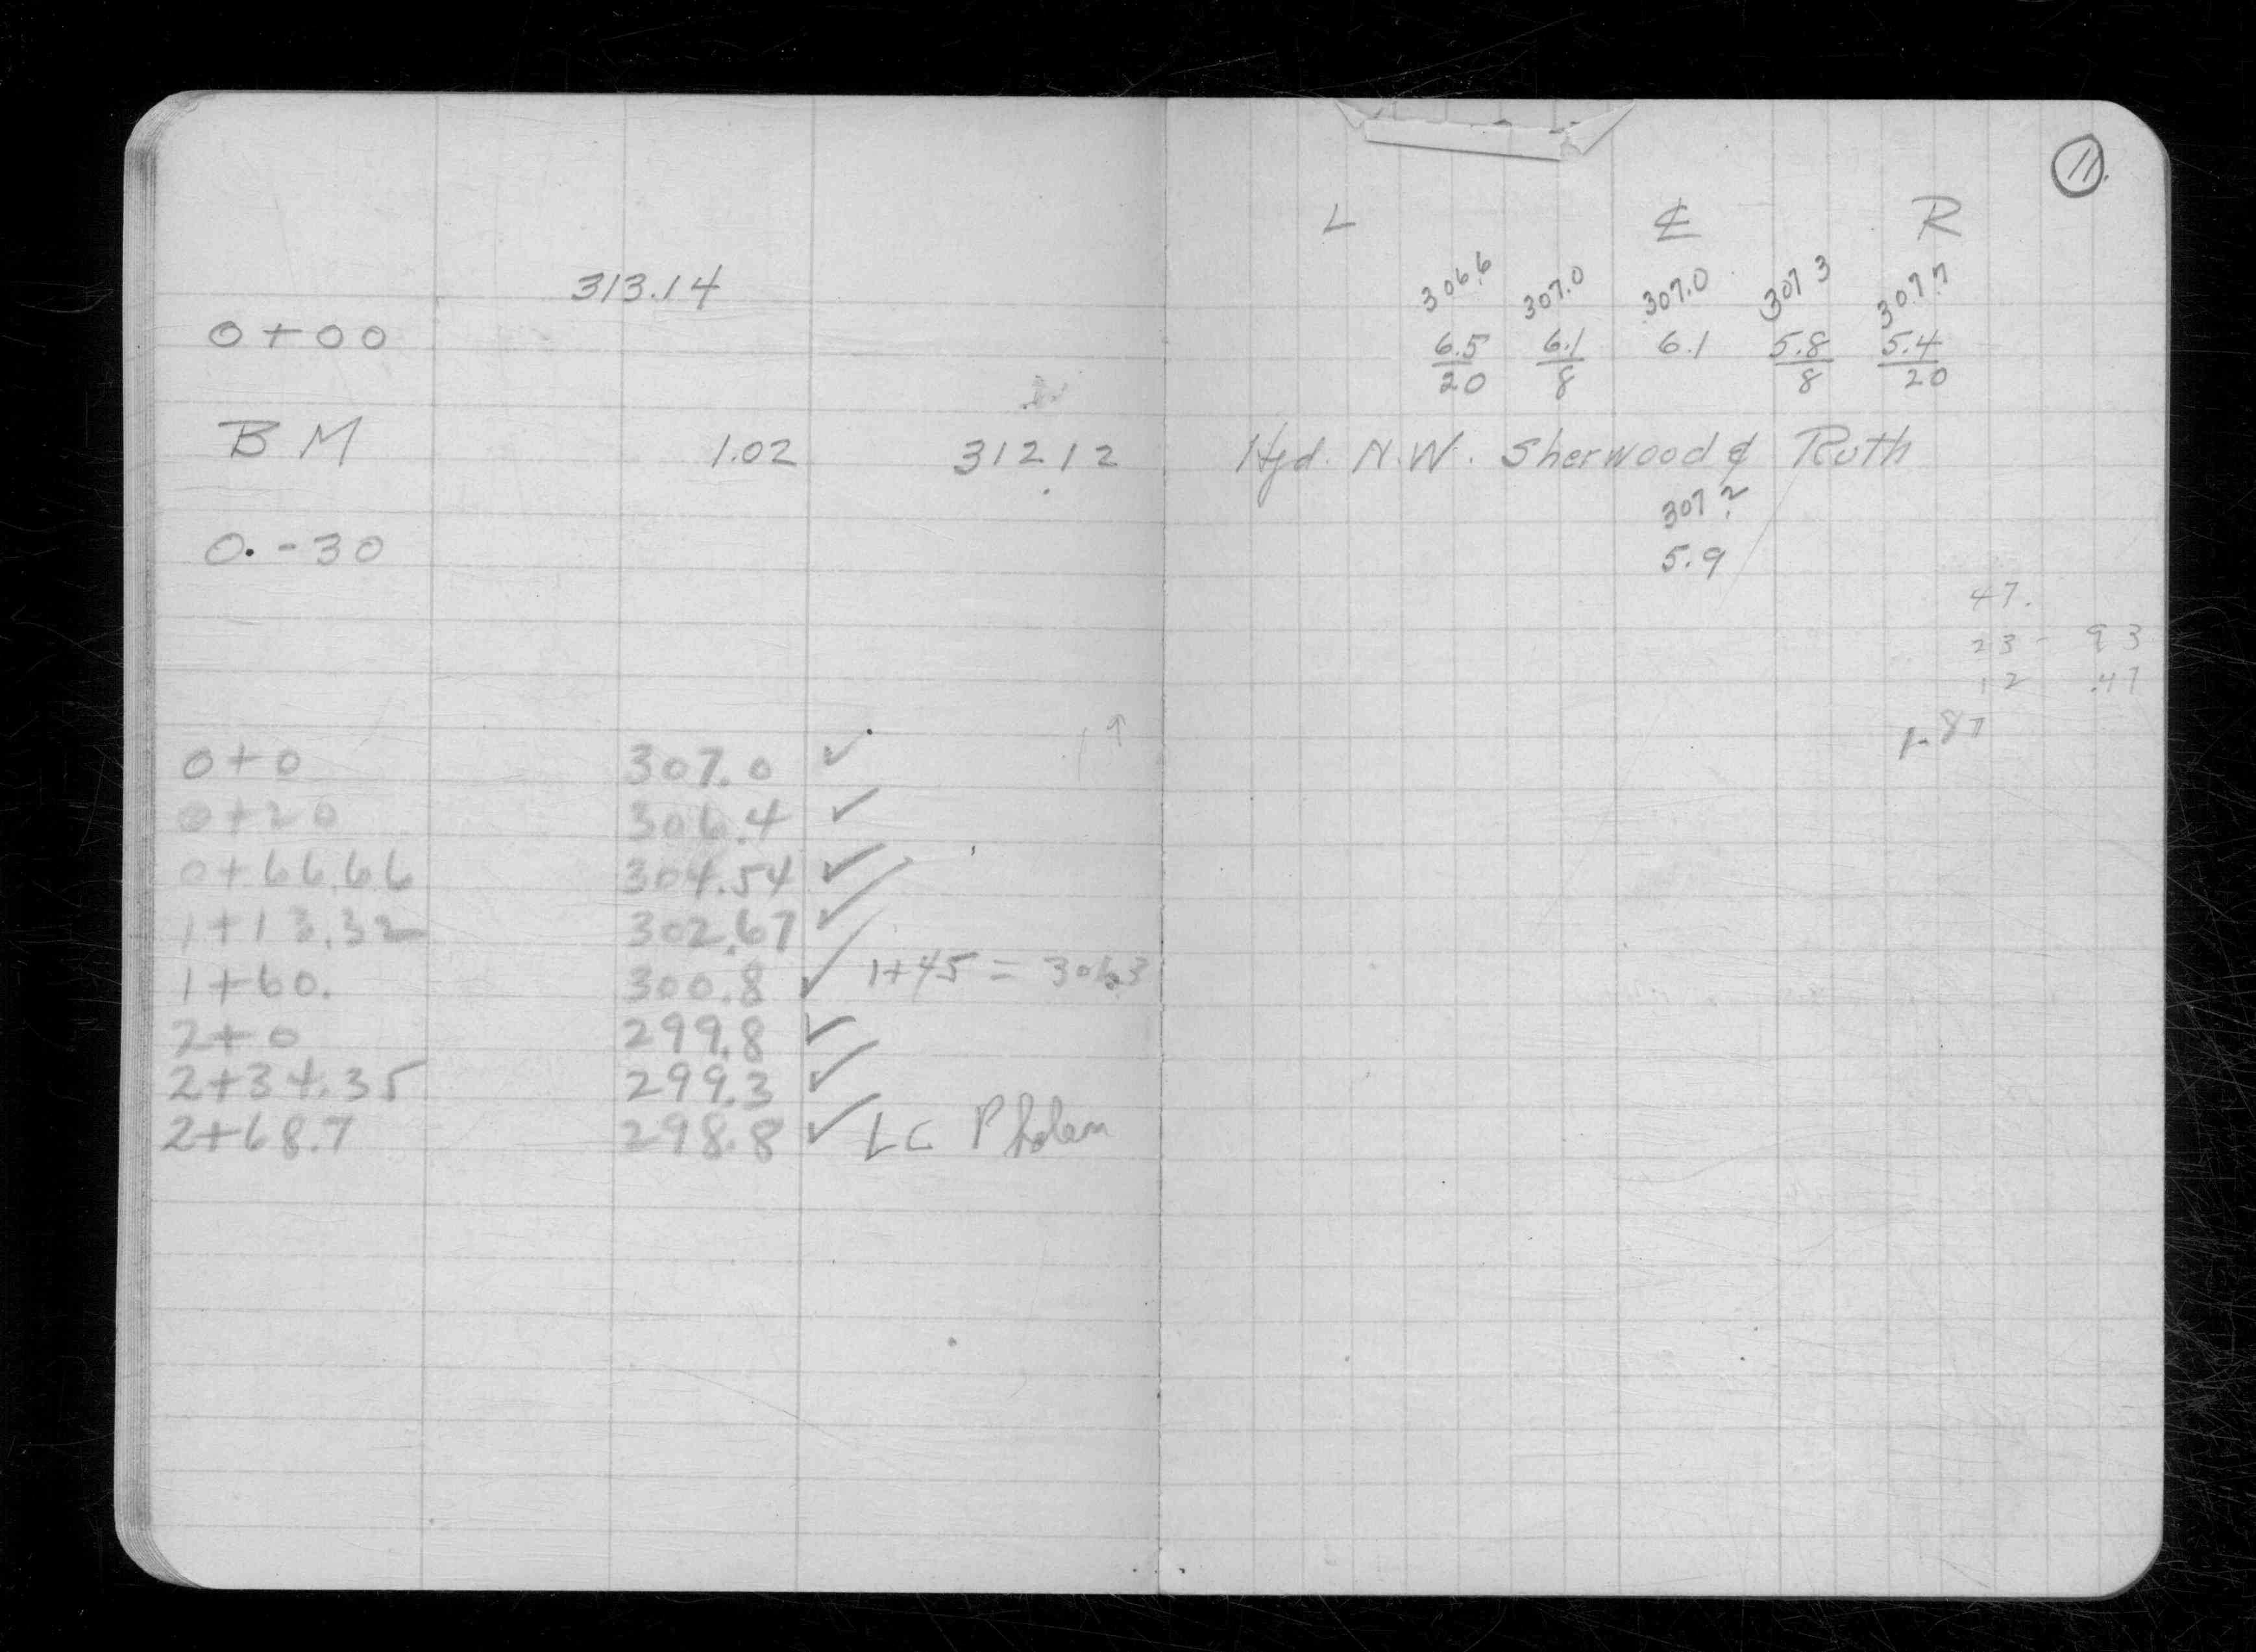 11.
L ℄ R
313.14
306.6 307.0 307.0 307.3 307.7
0+00
6.5/20 6.1/8 6.1 5.8/8 5.4/20
BM 1.02 312.12 Hyd. N.W. Sherwood & Ruth
307.2
0.-30 5.9
47.
23 - 93
12 .47
1.87
0+0 307.0 ✓
0+20 306.4 ✓
0+66.66 304.54 ✓
1+13.32 302.67 ✓
1+60. 300.8 ✓ 1+45 =
2+0 299.8 ✓
2+34.35 299.3 ✓
2+68.7 298.8 ✓ LC